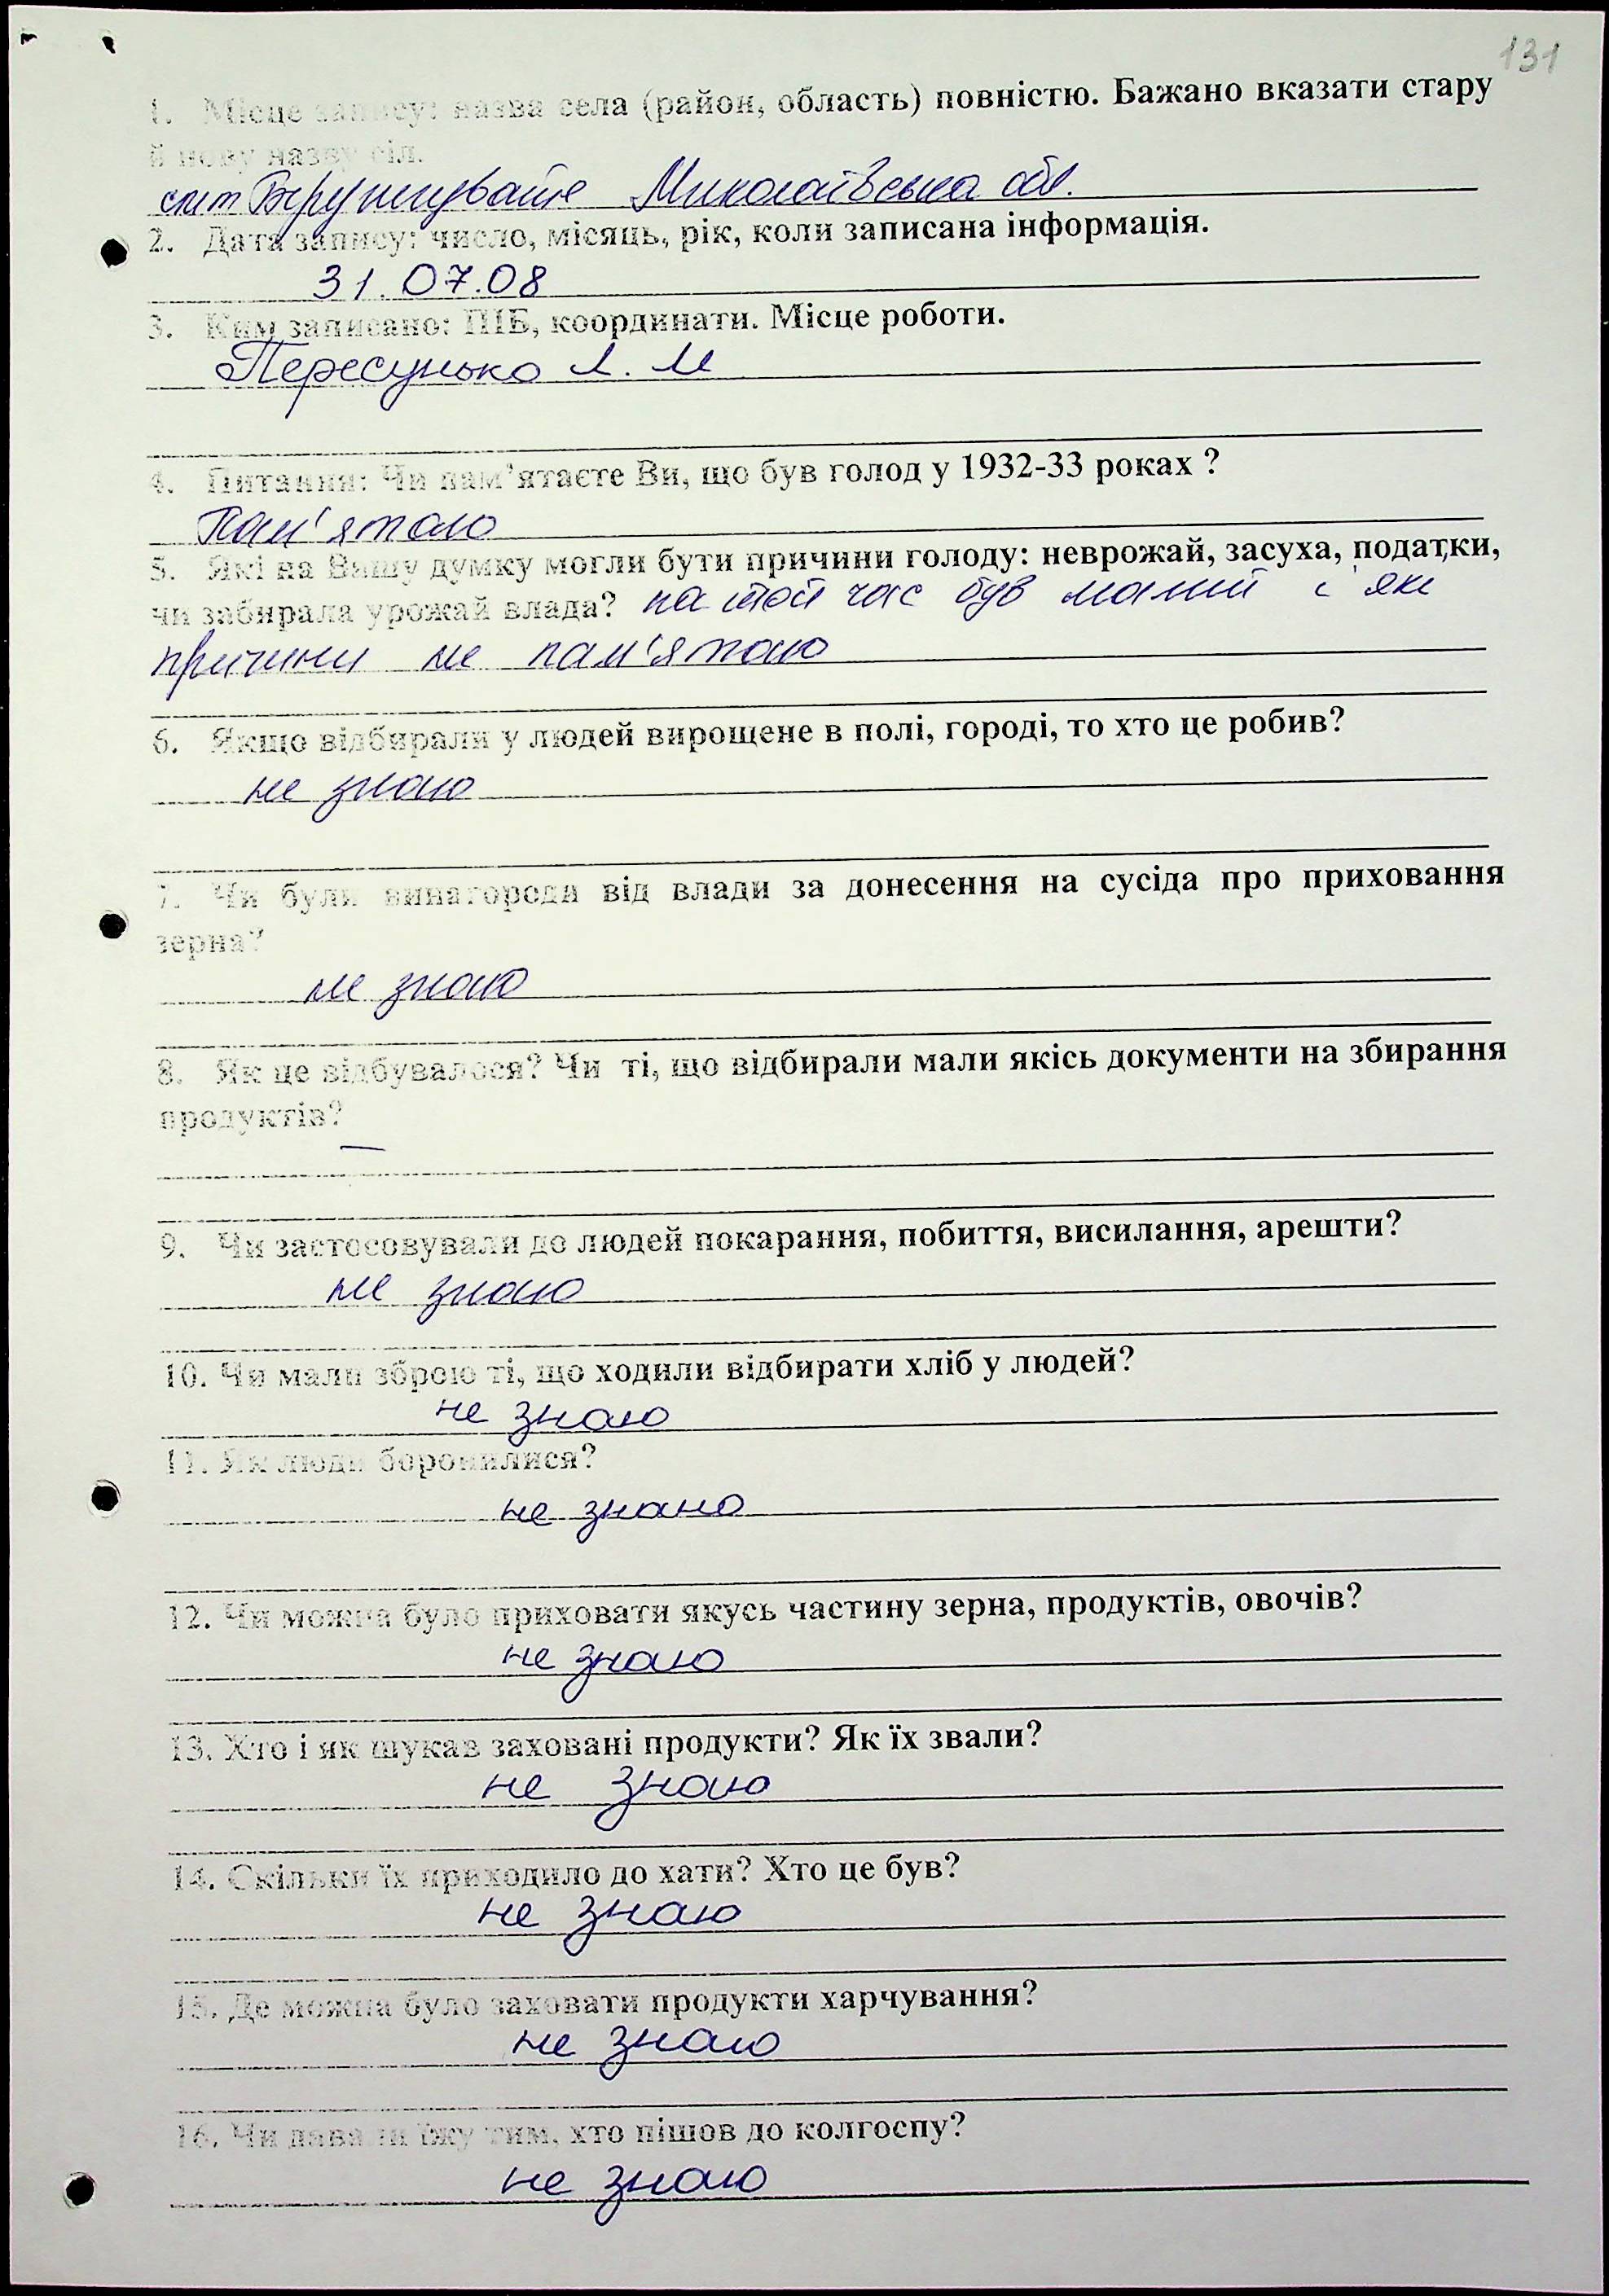 131
1. Місце запису: назва села (район, область) повністю. Бажано вказати стару
й нову назву сіл.
смт Миколаївська обл.
2. Дата запису: число, місяць, рік, коли записана інформація.
31.07.08
3. Ким записано: ПІБ, координати. Місце роботи.
Пересунько Л. М
4. Питання: Чи пам'ятаєте Ви, що був голод у 1932-33 роках ?
Пам'ятаю
5. Які на Вашу думку могли бути причини голоду: неврожай, засуха, податки,
чи забирала урожай влада? на той час був малий і які
причини не пам'ятаю
6. Якщо відбирали у людей вирощене в полі, городі, то хто це робив?
не знаю
7. Чи були винагороди від влади за донесення на сусіда про приховання
зерна?
не знаю
8. Як це відбувалося? Чи ті, що відбирали мали якісь документи на збирання
продуктів?
—
9. Чи застосовували до людей покарання, побиття, висилання, арешти?
не знаю
10. Чи мали зброю ті, що ходили відбирати хліб у людей?
не знаю
11. Як люди боронилися?
не знаю
12. Чи можна було приховати якусь частину зерна, продуктів, овочів?
не знаю
13. Хто і як шукав заховані продукти? Як їх звали?
не знаю
14. Скільки їх приходило до хати? Хто це був?
не знаю
15. Де можна було заховати продукти харчування?
не знаю
16. Чи давали їжу тим, хто пішов до колгоспу?
не знаю